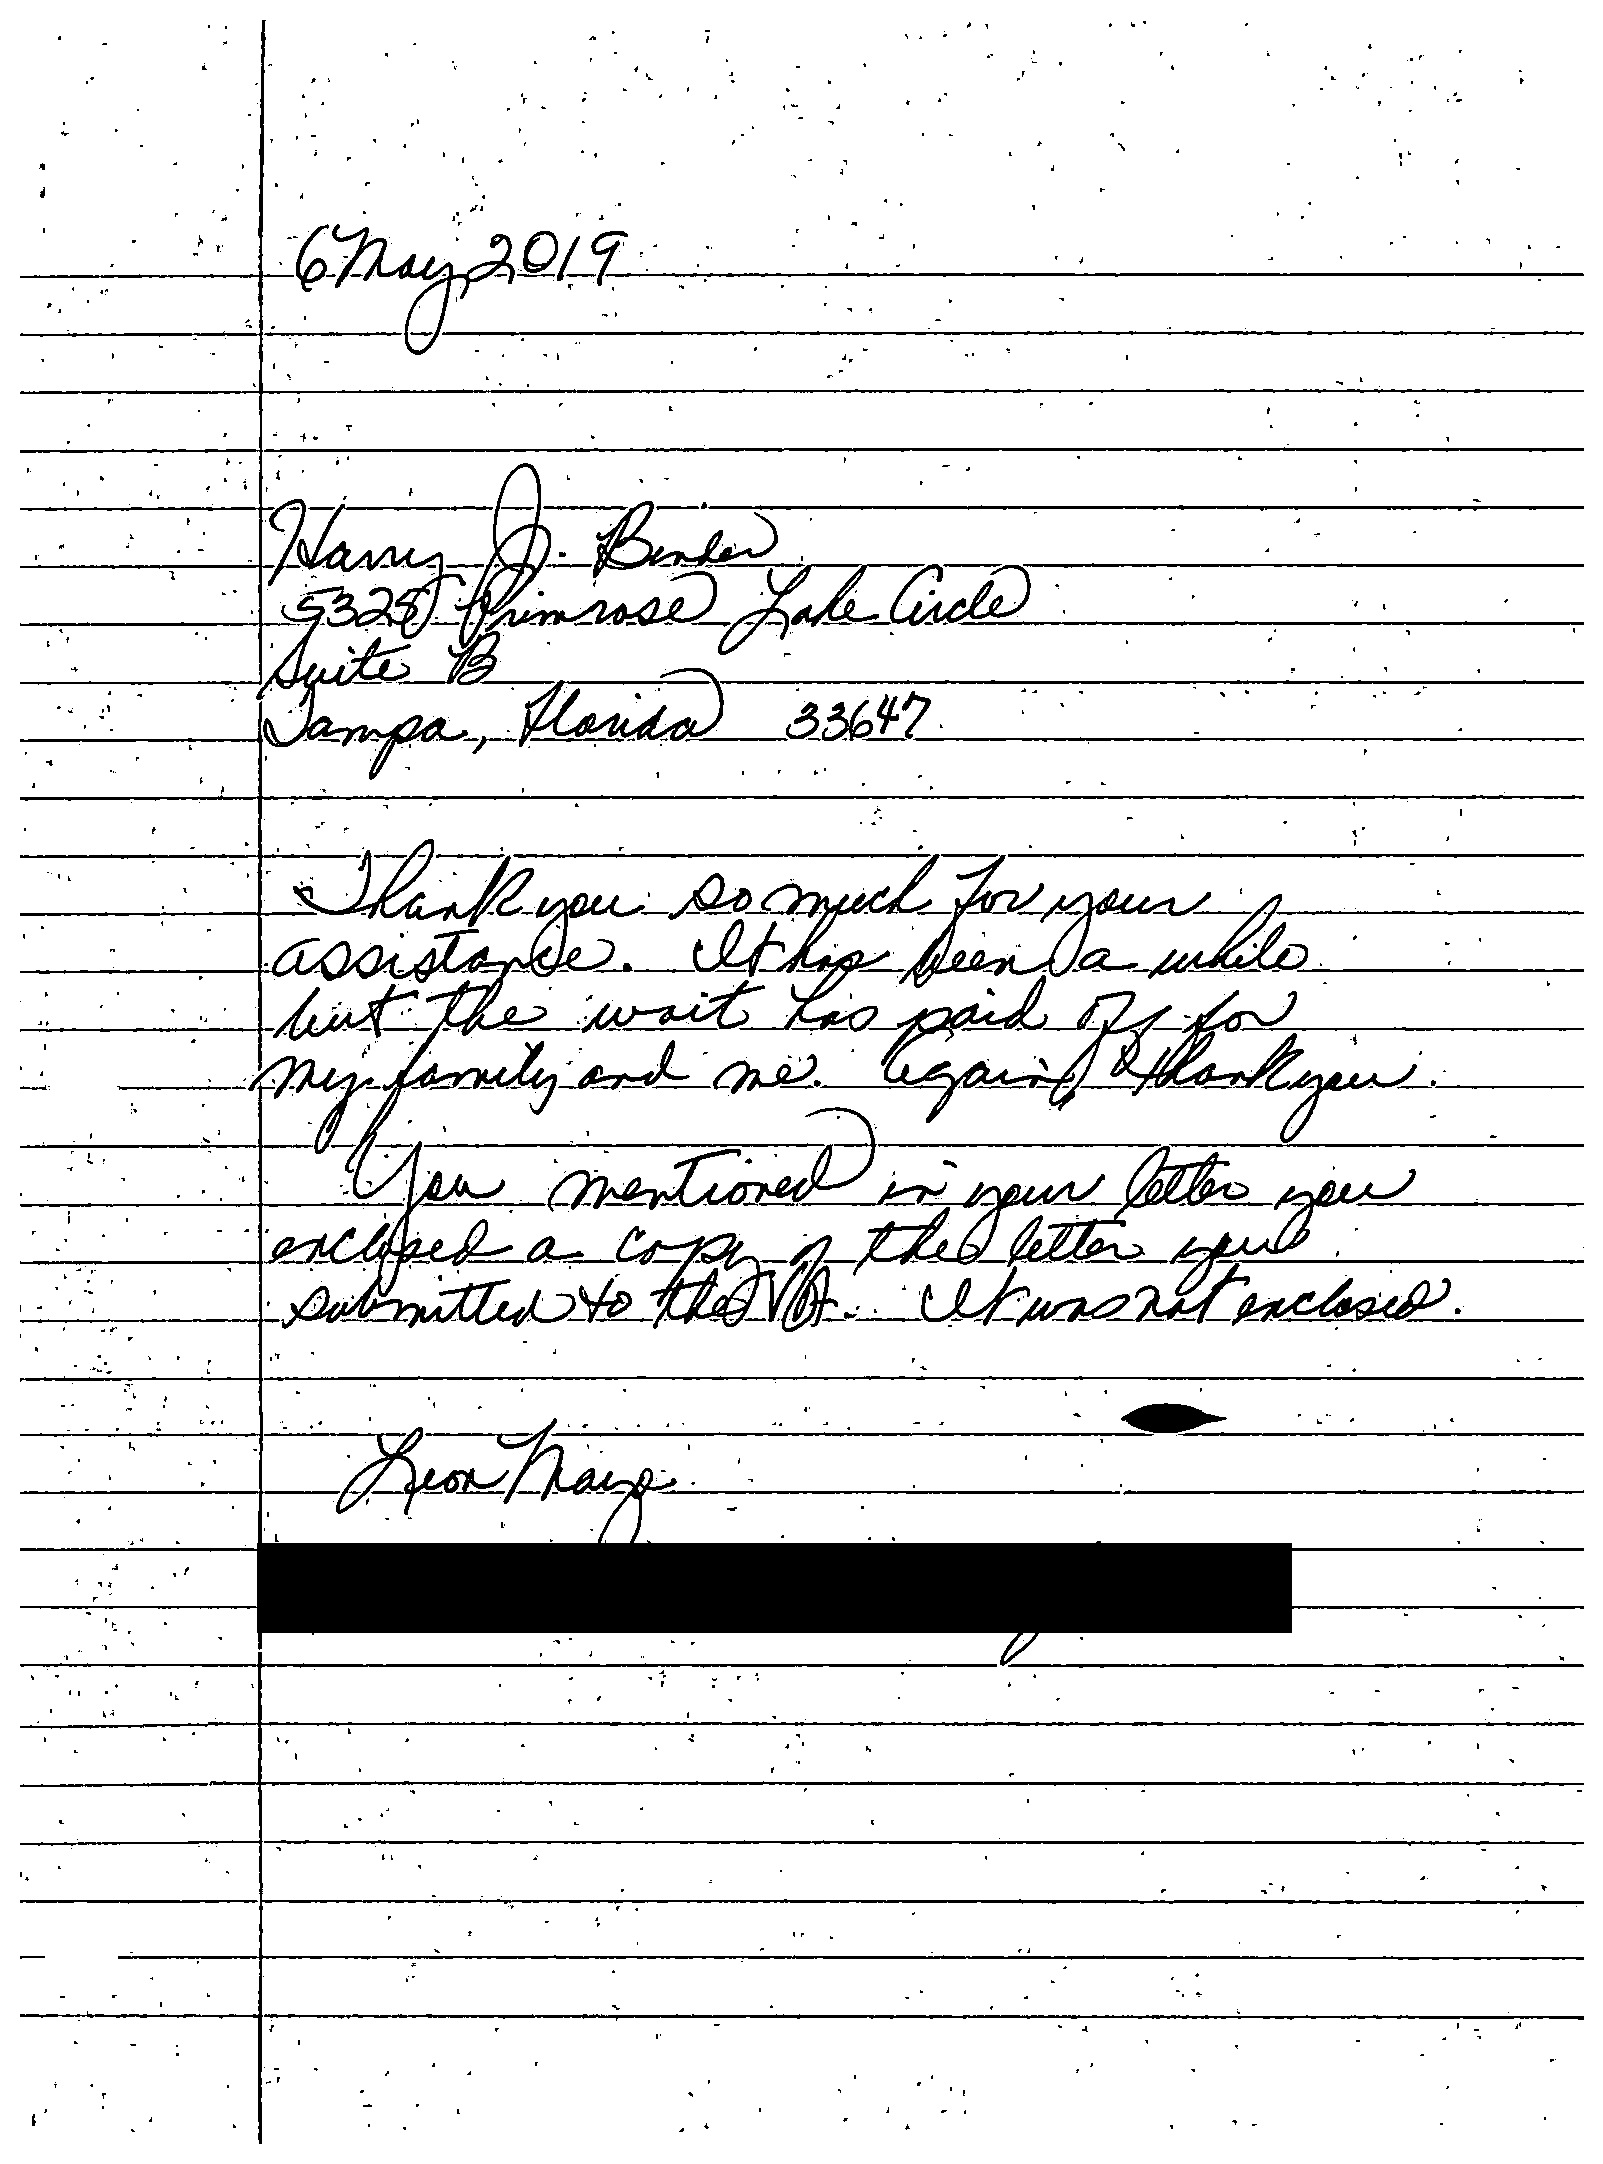 6 May 2019
Harry J. Binder
5328 Primrose Lake Circle
Suite B
Tampa, Florida 33647
Thank you so much for your
assistance. It has been a while
but the wait has paid off for
my family and me. Again, thank you.
You mentioned in your letter you
enclosed a copy of the letter you
submitted to the VA. It was not enclosed.
Leon Mayo